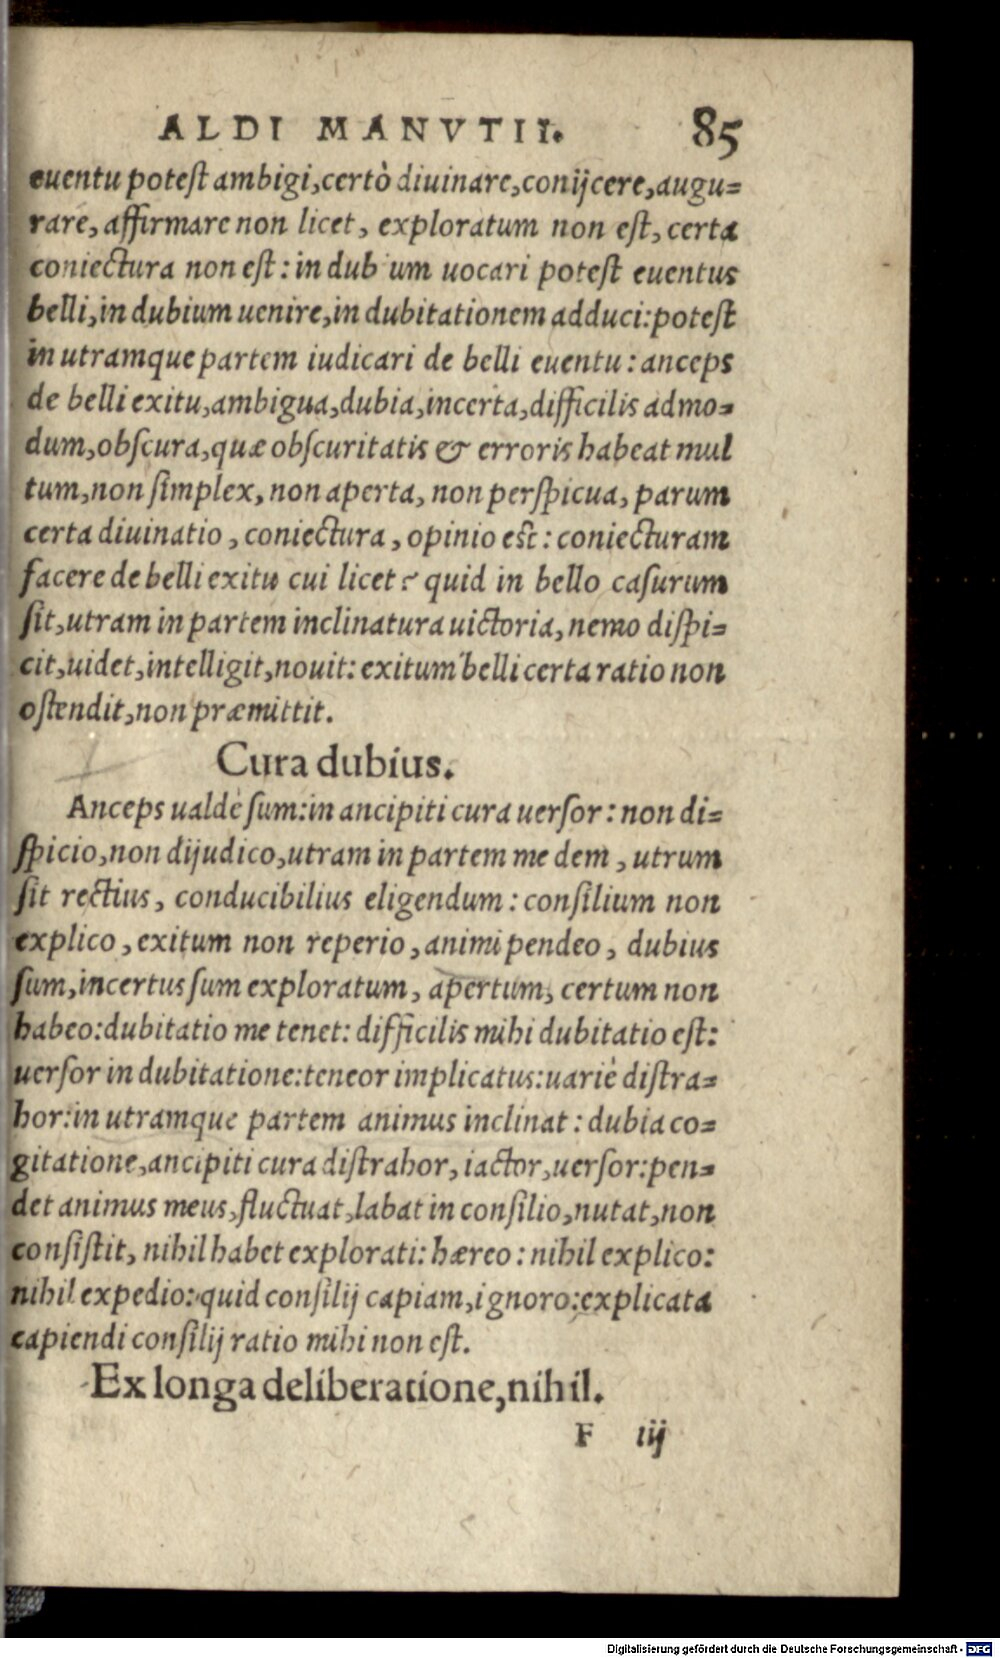 ALDI MANVTII. 85
euentu potest ambigi, certò diuinare, conijcere, augu=
rare, affirmare non licet, exploratum non est, certa
coniectura non est: in dub um uocari potest euentus
belli, in dubium uenire, in dubitationem adduci: potest
in utramque partem iudicari de belli euentu: anceps
de belli exitu, ambigua, dubia, incerta, difficilis admo=
dum, obscura, quæ obscuritatis & erroris habeat mul
tum, non simplex, non aperta, non perspicua, parum
certa diuinatio, coniectura, opinio est: coniecturam
facere de belli exitu cui licet? quid in bello casurum
sit, utram in partem inclinatura uictoria, nemo dispi=
cit, uidet, intelligit, nouit: exitum belli certa ratio non
ostendit, non præmittit.
Cura dubius.
Anceps ualdè sum: in ancipiti cura uersor: non di=
spicio, non dijudico, utram in partem me dem, utrum
sit rectius, conducibilius eligendum: consilium non
explico, exitum non reperio, animi pendeo, dubius
sum, incertus sum exploratum, apertum, certum non
habeo: dubitatio me tenet: difficilis mihi dubitatio est:
uersor in dubitatione: teneor implicatus: uariè distra=
hor: in utramque partem animus inclinat: dubia co=
gitatione, ancipiti cura distrahor, iactor, uersor: pen=
det animus meus, fluctuat, labat in consilio, nutat, non
consistit, nihil habet explorati: hæreo: nihil explico:
nihil expedio: quid consilij capiam, ignoro: explicata
capiendi consilij ratio mihi non est.
Ex longa deliberatione, nihil.
F iij
Digitalisierung gefördert durch die Deutsche Forschungsgemeinschaft - DFG